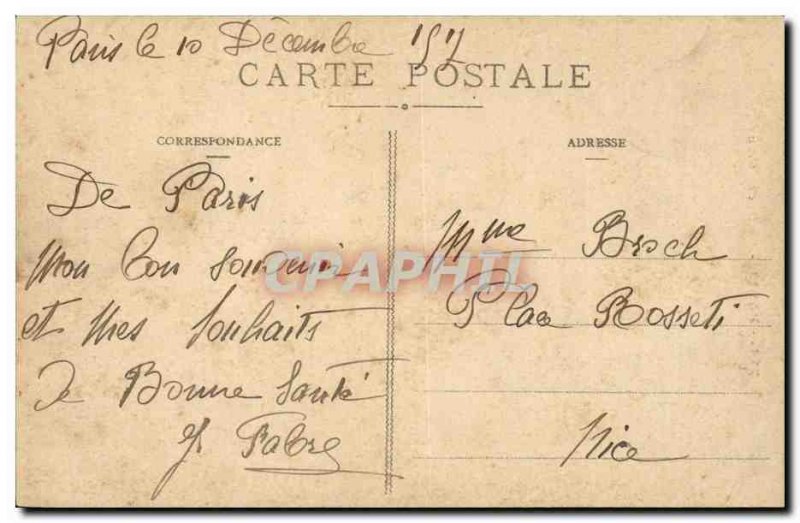 Paris le 10 Décembre
CARTE POSTALE
CORRESPONDANCE
De Paris
Mon bon souvenir
et mes souhaits
de Bonne Santé
Fabre
ADRESSE
Mme Broch
Place Rosseti
Nice
CPAPHIL